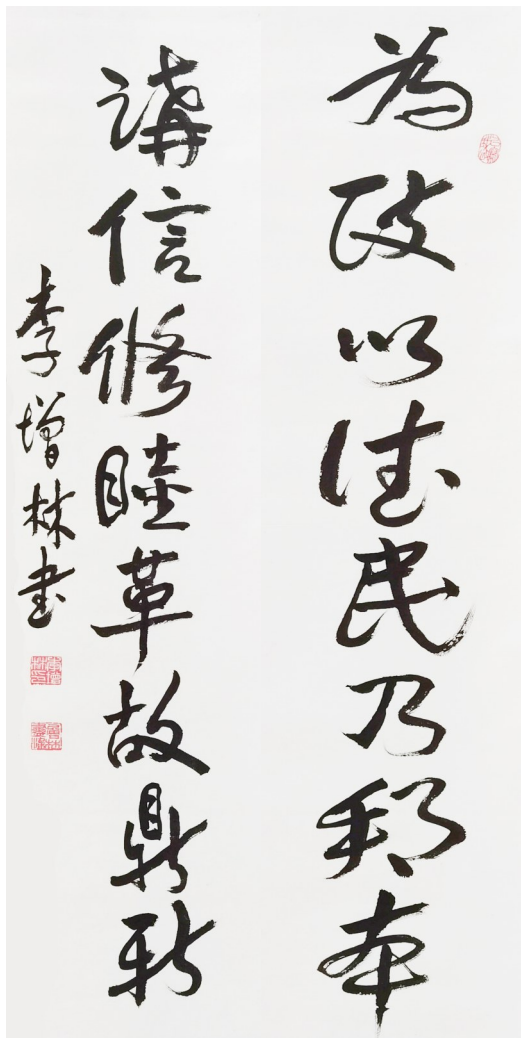 為政以德民乃邦本
講信修睦革故鼎新
李增林書